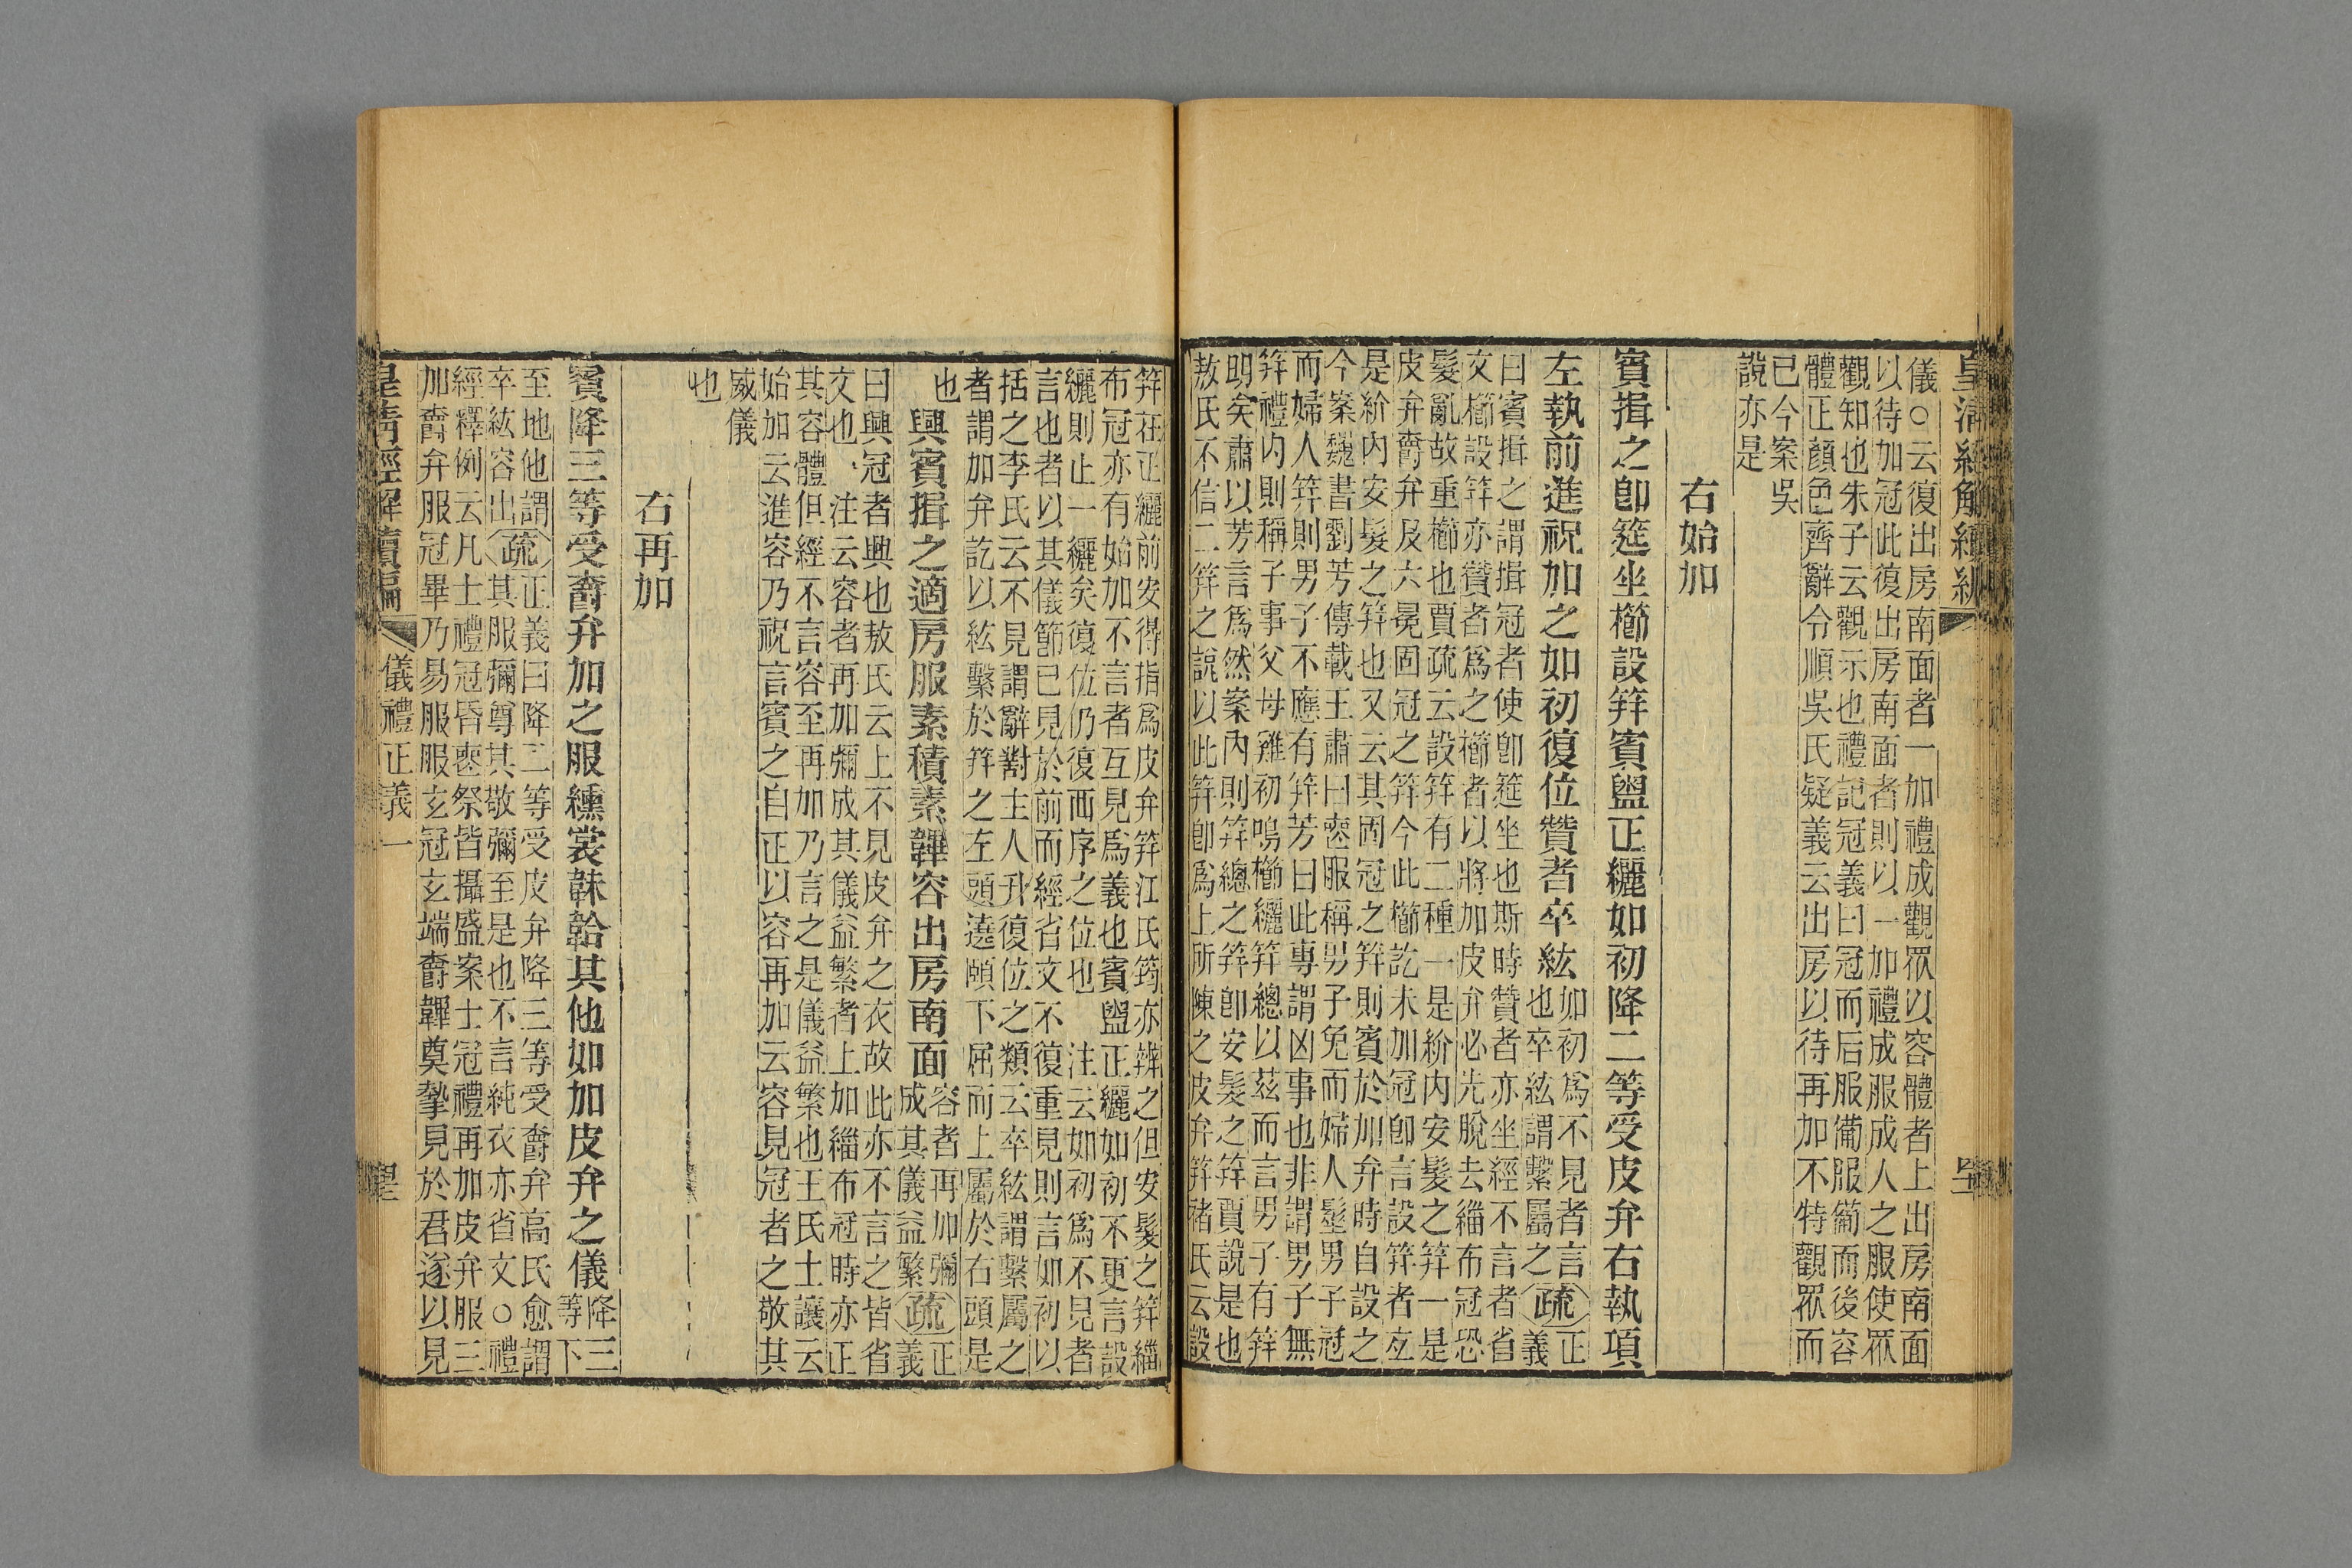 皇清經解續編
儀○云復出房南面者一加禮成觀眾以容體者上出房南面
以待加冠此復出房南面者則以一加禮成服成人之服使眾
觀知也朱子云觀示也禮記冠義曰冠而后服備服備而後容
體正顏色齊辭令順吳氏疑義云出房以待再加不特觀眾而
已今案吳
說亦是
右始加
賓揖之卽筵坐櫛設笄賓盥正纚如初降二等受皮弁右執項
左執前進祝加之如初復位贊者卒紘
如初爲不見者言
也卒紘謂繫屬之
疏
正
義
曰賓揖之謂揖冠者使卽筵坐也斯時贊者亦坐經不言者省
文櫛設笄亦贊者爲之櫛者以將加皮弁必先脫去緇布冠恐
髮亂故重櫛也賈疏云設笄有二種一是紒內安髮之笄一是
皮弁爵弁及六冕固冠之笄今此櫛訖未加冠卽言設笄者㝎
是紒內安髮之笄也又云其固冠之笄則賓於加弁時自設之
今案魏書劉芳傳載王肅曰喪服稱男子免而婦人髽男子冠
而婦人笄則男子不應有笄芳曰此專謂凶事也非謂男子無
笄禮內則稱子事父母雞初鳴櫛纚笄總以茲而言男子有笄
明矣肅以芳言爲然案內則笄總之笄卽安髮之笄賈說是也
敖氏不信二笄之說以此笄卽爲上所陳之皮弁笄褚氏云設
笄在正纚前安得指爲皮弁笄江氏筠亦辨之但安髮之笄緇
布冠亦有始加不言者互見爲義也賓盥正纚如初不更言設
纚則止一纚矣復位仍復西序之位也　注云如初爲不見者
言也者以其儀節已見於前而經省文不復重見則言如初以
括之李氏云不見謂辭對主人升復位之類云卒紘謂繫屬之
者謂加弁訖以紘繫於笄之左頭遶頤下屈而上屬於右頭是
也
興賓揖之適房服素積素韠容出房南面
容者再加彌
成其儀益繁
疏
正
義
曰興冠者興也敖氏云上不見皮弁之衣故此亦不言之皆省
文也　注云容者再加彌成其儀益繁者上加緇布冠時亦正
其容體但經不言容至再加乃言之是儀益繁也王氏士讓云
始加云進容乃祝言賓之自正以容再加云容見冠者之敬其
威儀
也
右再加
賓降三等受爵弁加之服纁裳韎韐其他如加皮弁之儀
降三
等下
至地他謂
卒紘容出
疏
正義曰降二等受皮弁降三等受爵弁高氏愈謂
其服彌尊其敬彌至是也不言純衣亦省文○禮
經釋例云凡士禮冠昏喪祭皆攝盛案士冠禮再加皮弁服三
加爵弁服冠畢乃易服服玄冠玄端爵韠奠摯見於君遂以見
皇清經解續編
儀禮正義一